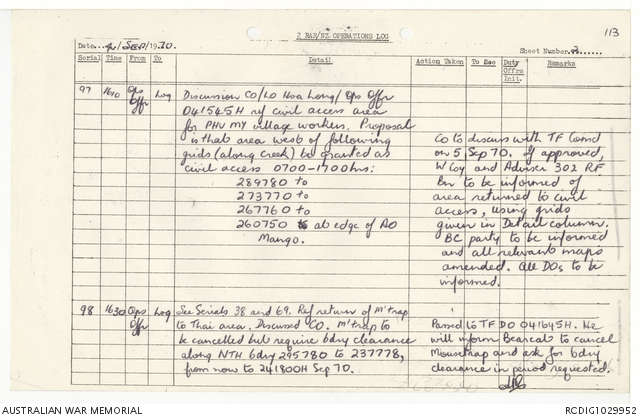 113
2 RAR/NZ OPERATIONS LOG
Date 4/Sep/1970.
Sheet Number 3
Serial Time From To Detail Action Taken To See Duty Offrs Init. Remarks
97 1610 Ops Offr Log Discussion CO/LO Hoa Long/Ops Offr
041545H ref civil access area
for PHU MY village workers. Proposal
is that area west of following
grids (along creek) be granted as
civil access 0700-1700hrs:
289780 to
273770 to
267760 to
260750 at edge of AO
Mango.
CO to discuss with TF Comd
on 5 Sep 70. If approved,
W Coy and Adviser 302 RF
Bn to be informed of
area returned to civil
access, using grids
given in Detail column.
BC party to be informed
and all relevant maps
amended. All DOs to be
informed.
98 1630 Ops Offr Log See Serials 38 and 69. Ref return of M'trap
to Thai area. Discussed CO. M'trap to
be cancelled but require bdry clearance
along NTH bdry 295780 to 237778,
from now to 241800H Sep 70.
Passed to TF DO 041645H. He
will inform Bearcat to cancel
Mousetrap and ask for bdry
clearance in period requested.
AUSTRALIAN WAR MEMORIAL
RCDIG1029952